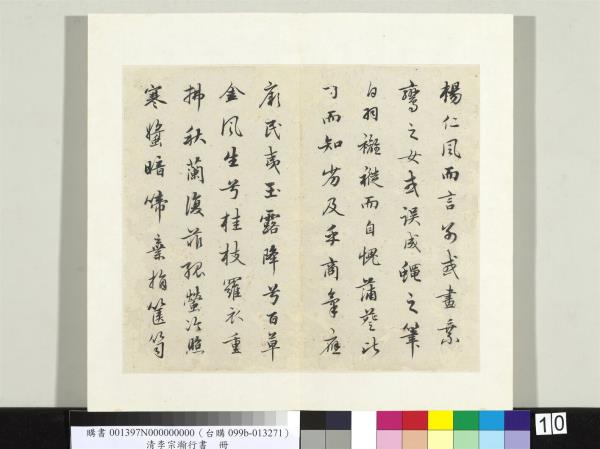 揚仁風而言別或畫乘
鸞之女或誤成蠅之筆
白羽襤褷而自愧蒲葵比
可而知劣及乎商氣應
厥民夷玉露降兮百草
金風生兮桂枝羅衣重
拂秋蘭復菲孤螢冷照
寒螿暗啼棄捐篋笥
購書 001397N000000000(台購 099b-013271)
清李宗瀚行書 冊
10